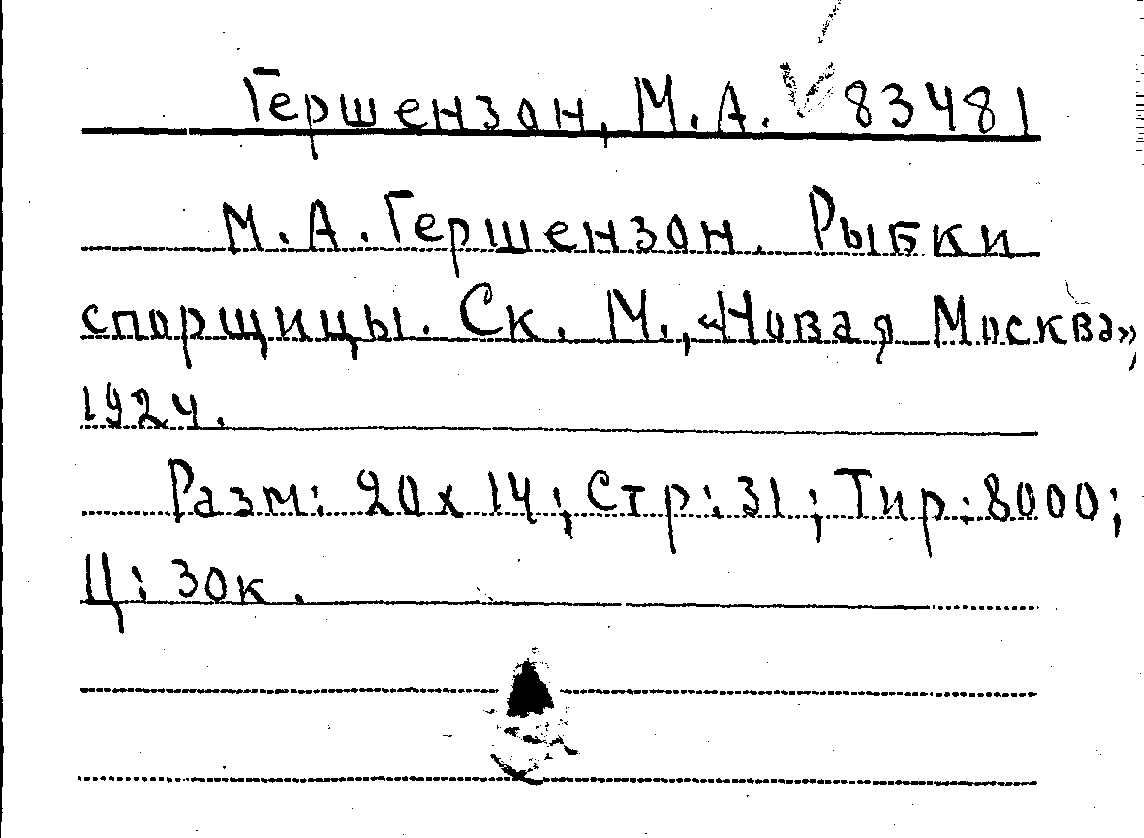 Гершензон, М. А. V 83481
М. А. Гершензон. Рыбки
спорщицы. Ск. М., «Новая Москва»,
1924.
Разм: 20х14; Стр: 31; Тир: 8000;
Ц: 30к.